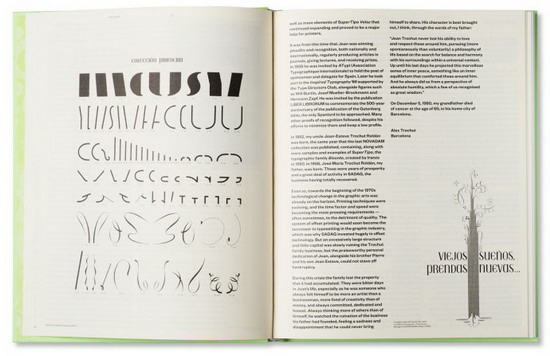 COLECCIÓN PRIMERA
well as more elements of Super-Tipo Veloz that
continued expanding and proved to be a major
help for printers.
It was from this time that Joan was winning
plaudits and recognition, both nationally and
internationally, regularly producing articles in
journals, giving lectures, and receiving prizes.
In 1958 he was invited by ATypI (Association
Typographique Internationale) to hold the post of
spokesman and delegate for Spain. Later he took
part in the
by
the Type Directors Club, alongside figures such
as Will Burtin, Josef Müller-Brockmann and
Hermann Zapf. He was invited by the publication
LIBER LIBRORUM to commemorate the 500-year
anniversary of the publication of the Gutenberg
bible, the only Spaniard to be approached. Many
other proofs of recognition followed, despite his
efforts to minimize them and keep a low profile.
In 1952, my uncle Joan-Esteve Trochut Roldán
was born, the same year that the last NOVADAM
collection was published, containing, along with
more samples and examples of Super-Tipo, the
typographic family Bisonte, created by Iranzo
in 1960. In 1955, José María Trochut Roldán, my
father, was born. Those were years of prosperity
and a great deal of activity in SADAG, the
business having totally recovered.
Even so, towards the beginning of the 1970s
technological change in the graphic arts was
already on the horizon. Printing techniques were
evolving, and the time factor and speed were
becoming the most pressing requirements —
often, sometimes, to the detriment of quality. The
system of offset printing would soon become the
successor to typesetting in the graphic industry,
which was why SADAG invested hugely in offset
technology. But an excessively large structure
and little capital was slowly ruining the Trochut
family business, but the praiseworthy personal
dedication of Joan, alongside his brother Pierre
and his son Joan Esteve, could not stave off
bankruptcy.
During this crisis the family lost the property
that it had accumulated. They were bitter days
in Joan's life, especially as he was someone who
always felt himself to be more an artist than a
businessman, more fond of creativity than of
money, and always committed, dedicated and
honest. Always thinking more of others than of
himself, he watched the ruination of the business
his father had founded, feeling a sadness and
disappointment that he could never bring
himself to share. His character is best brought
out, I think, through the words of my father:
"Joan Trochut never lost his ability to love
and respect those around him, pursuing (more
spontaneously than voluntarily) a philosophy of
life based on the search for balance and harmony
with his surroundings within a universal context.
Up until his last days he projected this marvellous
sense of inner peace, something like an inner
equilibrium that comforted those around him.
And he always did so from a perspective of
absolute humility, which a few of us recognised
as great wisdom."
On December 5, 1980, my grandfather died
of cancer at the age of 60, in his home city of
Barcelona.
Alex Trochut
Barcelona
VIEJOS SUEÑOS,
PRENDAS NUEVAS...